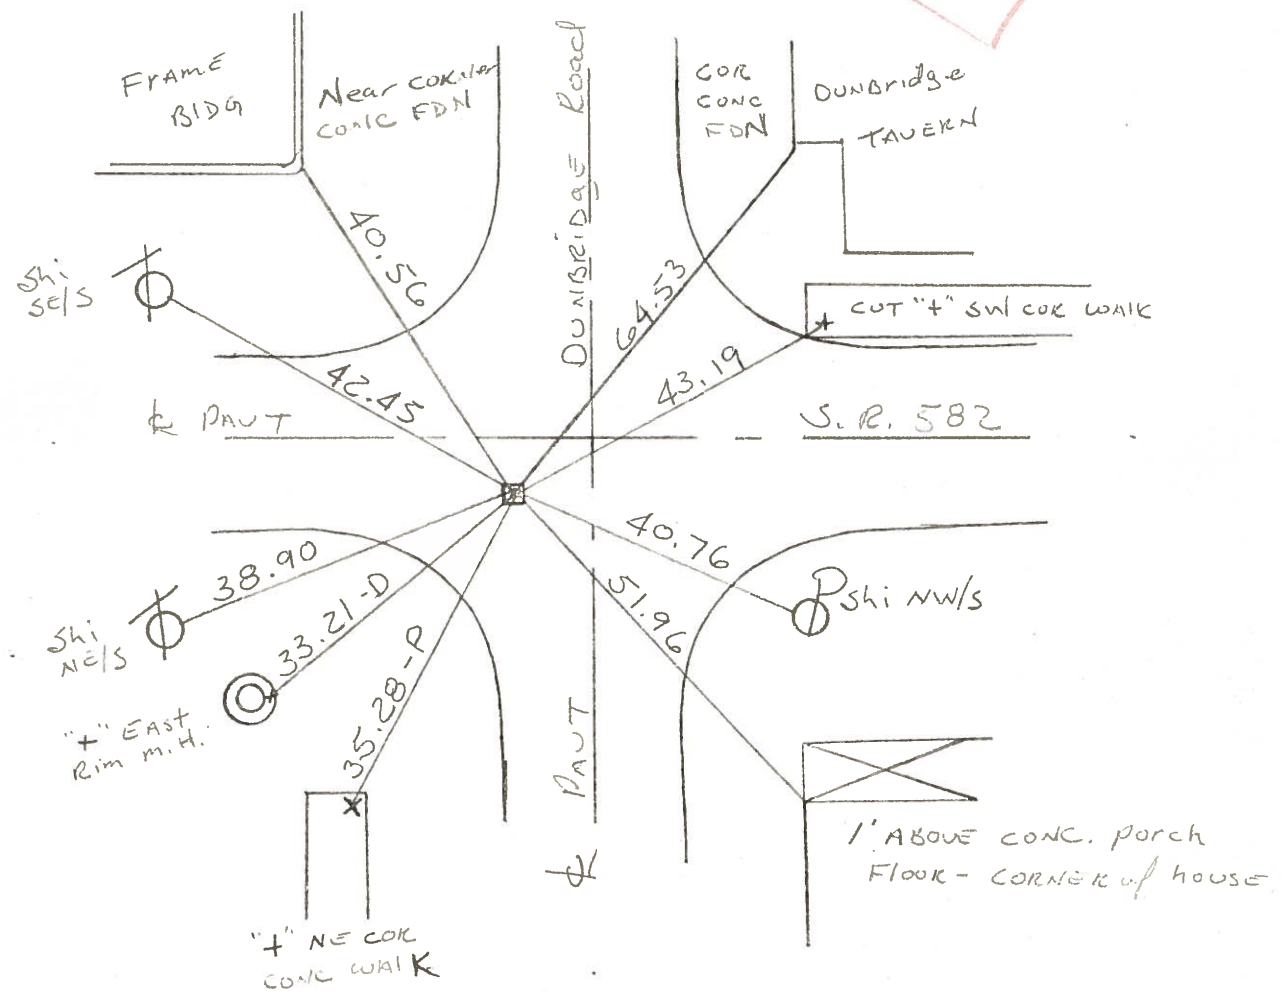 FRAME
BIDG
Near CORNer
CONC FDN
DUNBRIDGE Road
COR
CONC
FDN
DUNBridge
TAVERN
40.56
64.53
Shi
SE/S
CUT "+" SW COR WALK
42.45
43.19
℄ PAVT
S.R. 582
38.90
40.76
33.21-D
51.96
Shi NW/S
Shi
NE/S
35.28-P
"+" EAST
Rim M.H.
℄ PAVT
1' ABOVE CONC. Porch
Floor - CORNER of house
"+" NE COR
CONC WALK